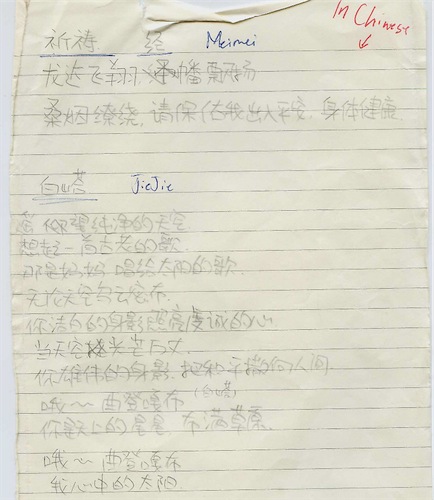 In Chinese
祈祷 经 Meimei
龙达飞翔, 幡
桑烟缭绕, 请保佑我出入平安, 身体健康
白塔 JieJie
仰望纯净的天空
想起一首古老的歌
那是妈妈 唱给太阳的歌
无论天空乌云密布
你洁白的身影照亮虔诚的心
当天空 光芒万丈
你雄伟的身影, 把和平撒向人间
哦~ 曲登嘎布 (白塔)
你是天上的星星, 布满草原
哦~ 曲登嘎布
我心中的太阳